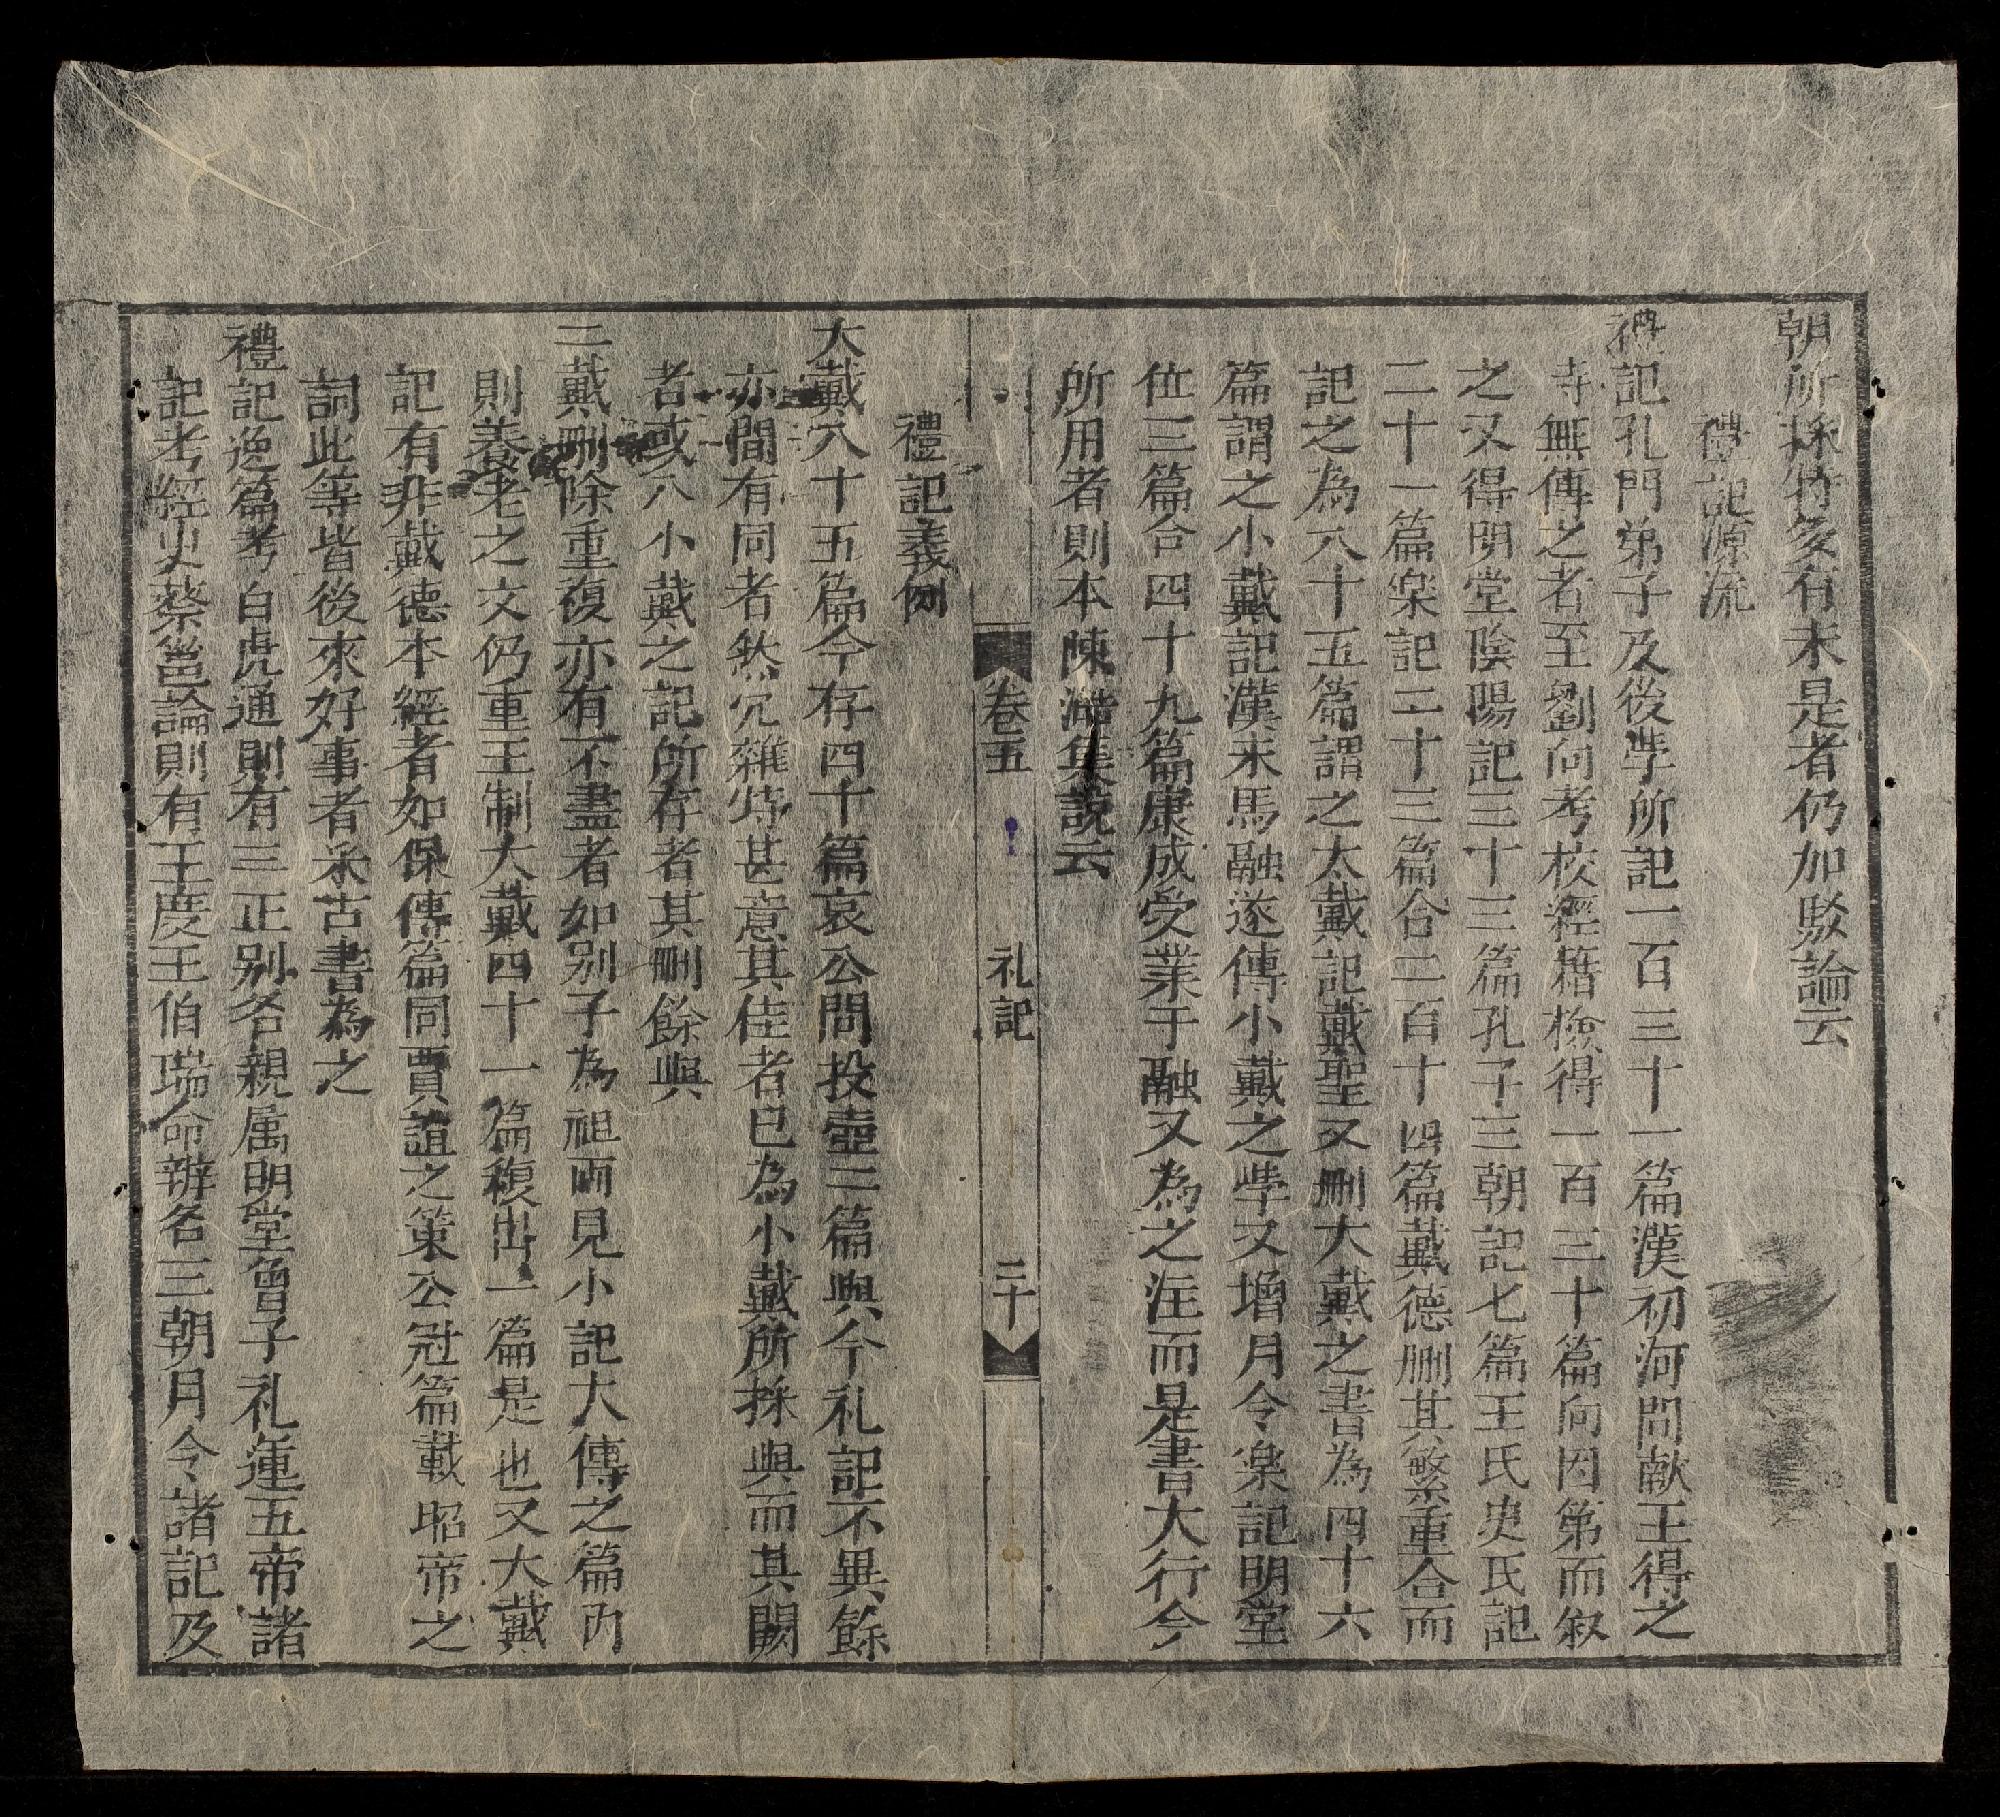 朝所採特多有未是者仍加駁論云
禮記源流
禮記孔門弟子及後斈所記一百三十一篇漢初河間献王得之
寺無傳之者至劉向考校經籍檢得一百三十篇向因第而叙
之又得明堂陰陽記三十三篇孔子三朝記七篇王氏史氏記
二十一篇楽記二十三篇合二百十四篇戴德刪其繁重合而
記之為八十五篇謂之大戴記戴聖又刪大戴之書為四十六
篇謂之小戴記漢末馬融遂傳小戴之斈又增月令楽記明堂
位三篇合四十九篇康成受業于融又為之注而是書大行今
所用者則本陳澔集說云
卷五 礼記 二十
禮記義例
大戴八十五篇今存四十篇哀公問投壺二篇與今礼記不異餘
亦間有同者然冗雜特甚意其佳者已為小戴所採與而其闕
者或八小戴之記所存者其刪餘與
二戴刪除重復亦有不盡者如别子為祖両見小記大傳之篇内
則養老之文仍重王制大戴四十一篇複出一篇是也又大戴
記有非戴德本經者如保傳篇同賈誼之策公冠篇載昭帝之
詞此等皆後來好事者釆古書為之
禮記逸篇考白虎通則有三正别各親属明堂曾子礼運五帝諸
記考經史蔡邕論則有王度王伯瑞命辨各三朝月令諸記及